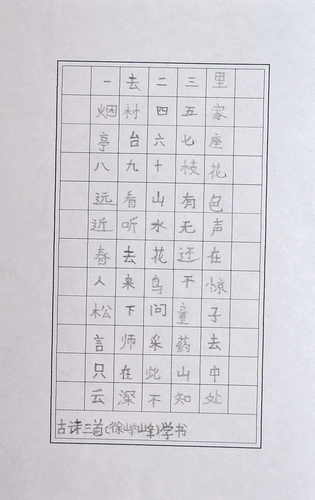 一去二三里
烟村四五家
亭台六七座
八九十枝花
远看山有色
近听水无声
春去花还在
人来鸟不惊
松下问童子
言师采药去
只在此山中
云深不知处
古诗三首(徐)学书